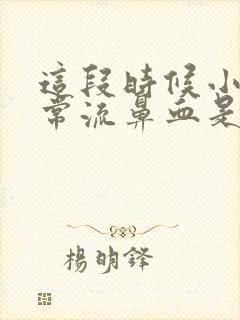 這段時候小
常流鼻血是
楊明鋒